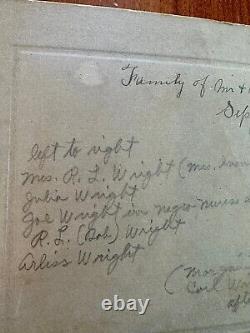 Family of Mr +
Sep
left to right
Mrs. R. L. Wright (Mrs.
Julia Wright
Joe Wright in negro nurse
R. L. (Bob) Wright
Arliss Wright
(Morgan
Carl